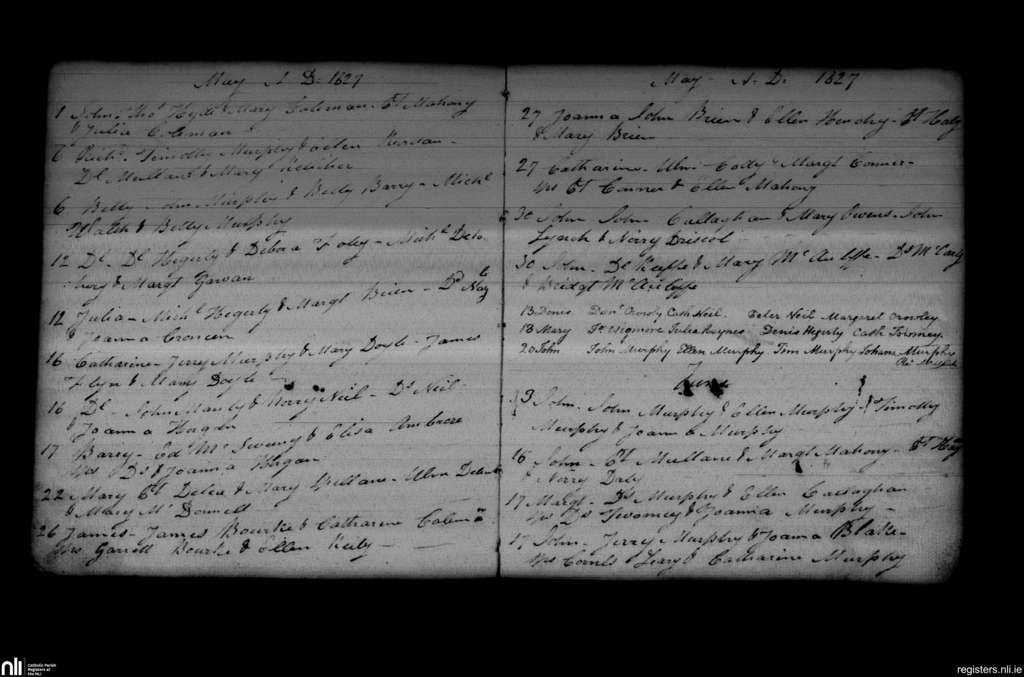 May A D. 1827
1 John, Thos Hyde & Mary Coleman - Ct Mahony
& Julia Coleman
6 Richd. Timothy Murphy & Ellen
Dl Mullane & Mary Keleher
6 Betty John Murphy & Betty Barry - Michl
Walsh & Betty Murphy
12 Dl. Dl Hegerty & Debora Foley - Michl
& Margt Gavan
12 Julia - Michl Hegerty & Margt Brien - Dd
& Joanna Cronin
16 Catharine - Jerry Murphy & Mary Doyle - James
Flyn & Mary Doyle
16 Dl - John & Norry Neil - Ds Neil -
& Joanna Hogan
17 Barry - Ed Mc Sweeny & Elisa Ambrose
Ds & Joanna Hogan
22 Mary Ct & Mary Mullane - Allen
& Mary Mc Donnell
26 James - James Bourke & Catharine
Garrett Bourke & Ellen
May - A. D. 1827
27 Joanna John Brien & Ellen Hendry - Ct Haly
& Mary Brien
27 Catharine. Wm - Cody & Margt Conner -
Ct Conner & Ellen Mahony
30 John John Callaghan & Mary Owens - John
Lynch & Norry Driscol
30 John - Dl Keeffe & Mary Mc Auliffe - Ds Mc Carty
& Bridgt Mc Auliffe
13 Denis Danl Crowly Cath Neil. Peter Neil Margaret Crowley
13 Mary Julia Haynes Denis Hegerty Cath Twomey
20 John John Murphy Ellen Murphy Tim Murphy Johana Murphy
June
3 John. John Murphy & Ellen Murphy Timothy
Murphy & Joanna Murphy
16 John - Ct Mullane & Margt Mahony - Ct
& Norry Daly
17 Margt - Ds Murphy & Ellen Callaghan
Ds Twomey & Joanna Murphy -
17 John - Jerry Murphy & Joanna Blake -
Corns Leary & Catharine Murphy
nli
Catholic Parish
Registers at
the NLI
registers.nli.ie